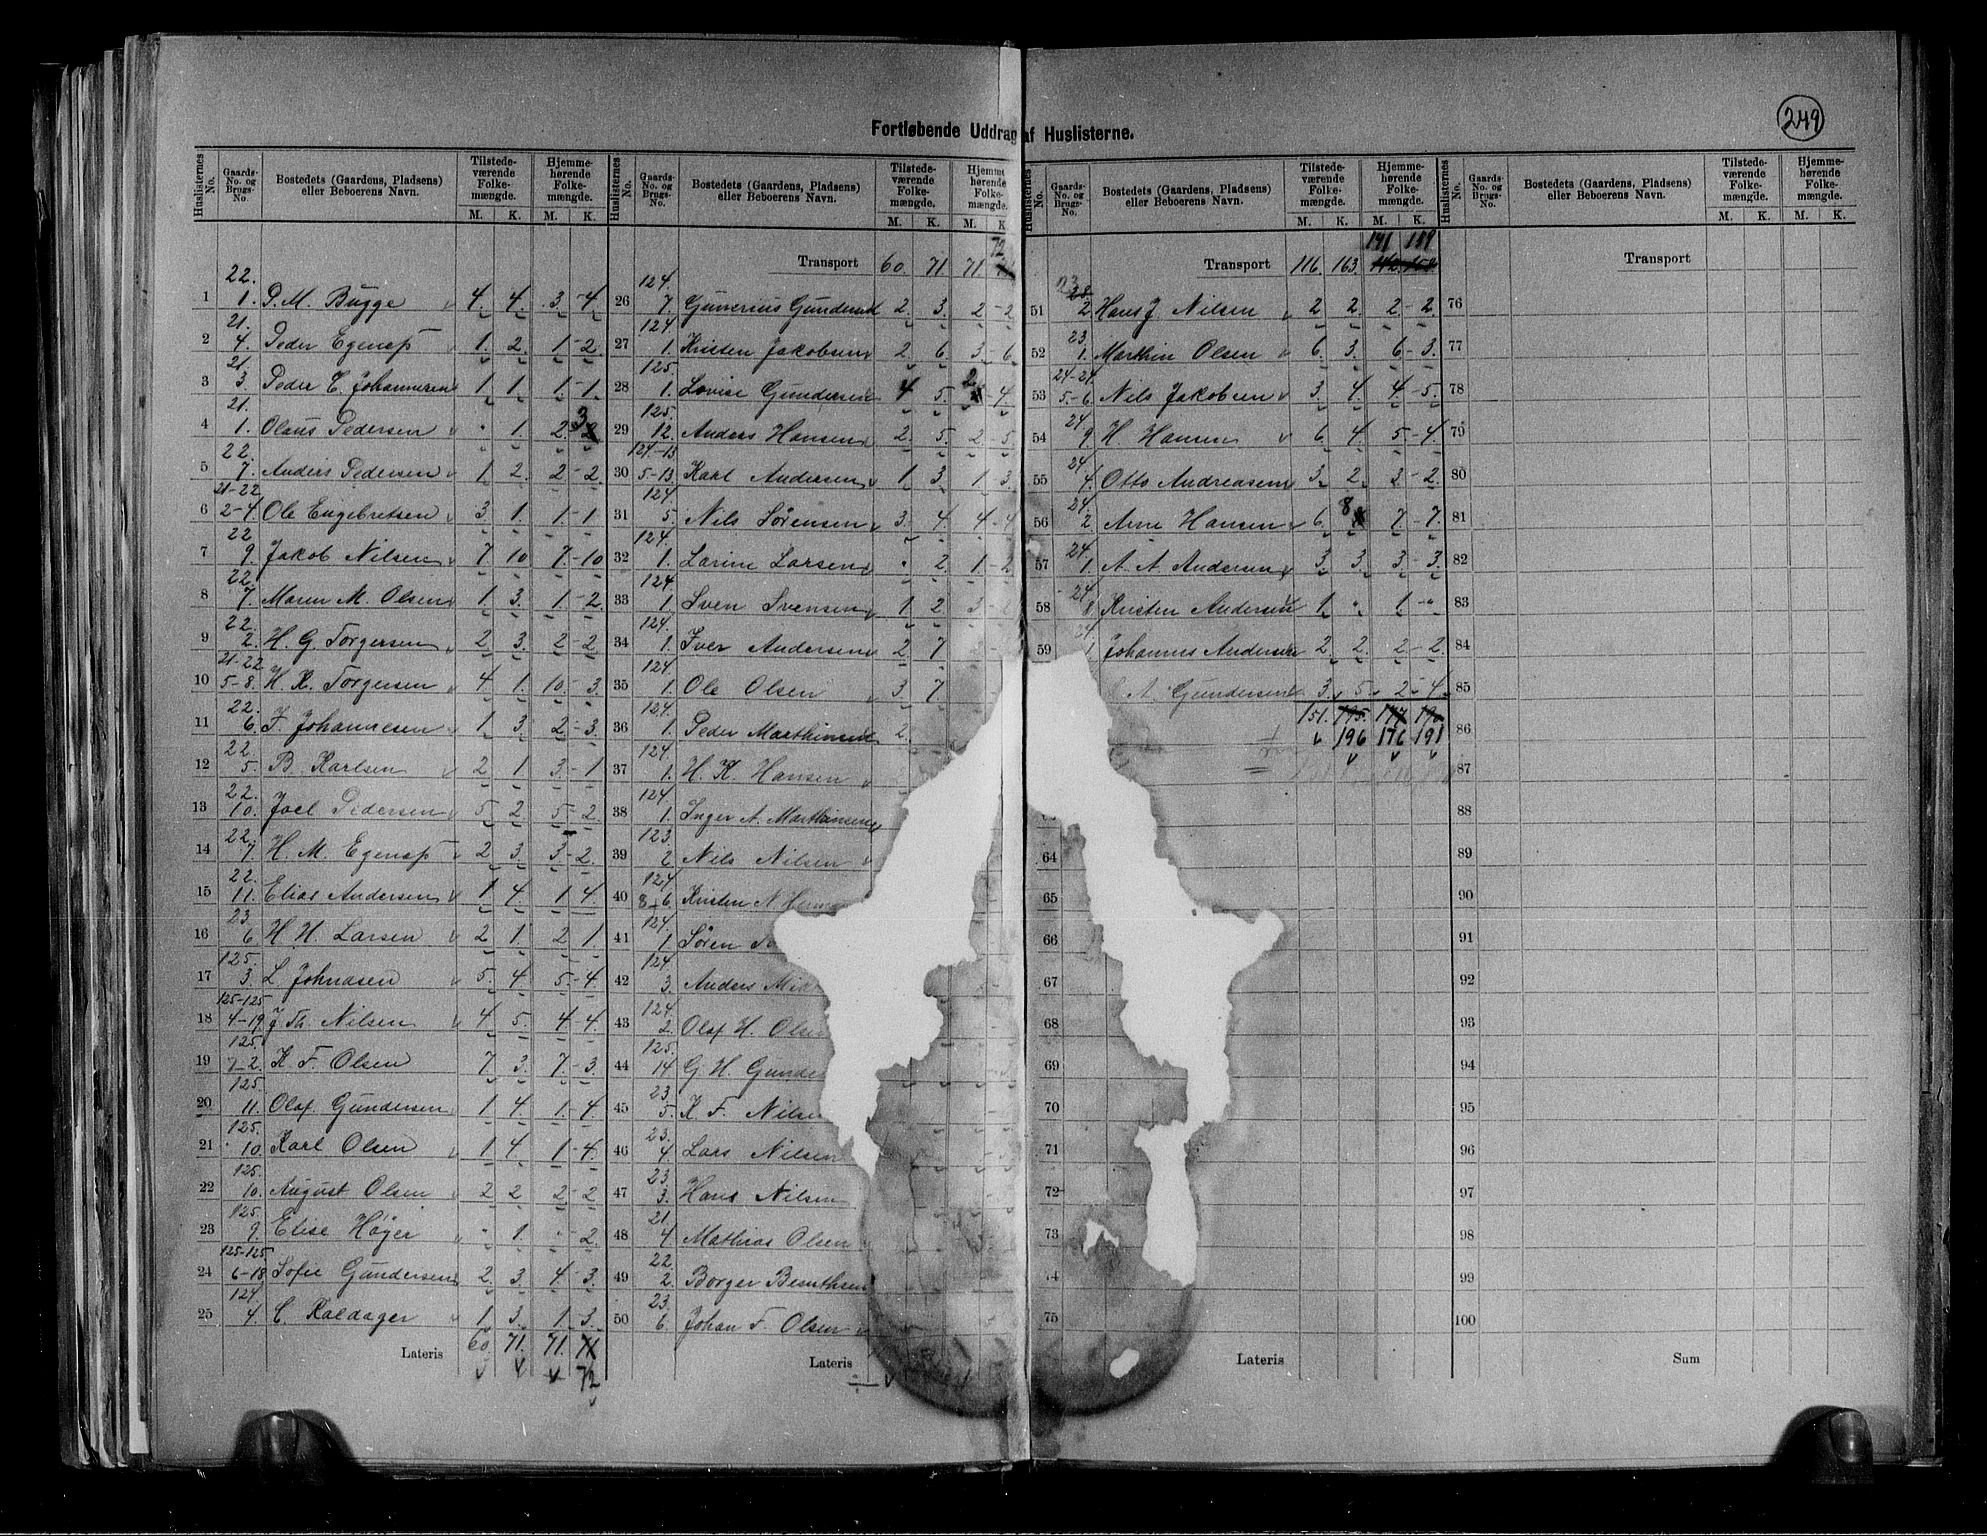 249
Fortløbende Uddrag af Huslisterne.
Huslisternes No. Gaards-No. og Brugs-No. Bostedets (Gaardens, Pladsens) eller Beboerens Navn. Tilstedeværende Folkemængde. M. K. Hjemmehørende Folkemængde. M. K.
22.
1 1. P. M. Bugge 4. 4. 3 - 4
21.
2 4. Peder Egenæs 1. 2. 1 - 2.
21.
3 3. Peder E. Johannesen 1. 1. 1 - 1.
21.
4 1. Olaus Pedersen " 1. 2. 3
22.
5 7. Anders Pedersen 1. 2. 2 - 2.
21-22
6 2-4. Ole Engebretsen 3 1. 1 - 1
22
7 9. Jakob Nilsen 7 10 7 - 10
22.
8 7. Maren M. Olsen 1. 3. 1. - 2.
22.
9 2. H. G. Torgersen 2 3. 2 - 2
21-22.
10 5-8. H. K. Torgersen 4 1. 10 - 3.
22.
11 6. F. Johannesen 1 3. 2 - 3.
22.
12 5. B. Karlsen 2 1 3 - 1
22.
13 10. Joel Pedersen 5 2 5 - 2
22.
14 7. H. M. Egenæs 2 3. 3 - 2.
22.
15 11. Elias Andersen 1 4. 1 4.
23.
16 6. H. H. Larsen 2 1. 2 1.
125.
17 3. L. Johnasen 5. 4 5. - 4.
125-125
18 4-19. J. Th. Nilsen 4 5. 4 - 4.
125.
19 7-2. K. F. Olsen 7 3. 7. - 3.
125
20 11. Olaf Gundersen 1 4. 1. - 4
125.
21 10. Karl Olsen 1 4. 1 - 4.
125.
22 10. August Olsen 2 2 2 - 2
125.
23 9. Elise Høyer " 1. " - 2.
125-125
24 6-18. Sofie Gundersen 2. 3. 4. - 3.
124
25 4. C. Kaldager 1 3. 1. - 3.
Lateris 60. 71. 71. 71
72
Transport 60. 71 71. 72
124.
26 7. Gunerius Gunders 2. 3. 2 - 2
124
27 1. Kristen Jakobsen 2. 6. 3 - 6.
125.
28 1. Lovise Gundersen 4 5. 2 - 4.
125.
29 12. Anders Hansen 2. 5. 2 - 5.
124-13
30 5-13. Karl Andersen 1. 3. 1 3.
124
31 5. Nils Sørensen 3. 4. 4 - 4
124.
32 1. Larine Larsen " 2. 1 - 2
124
33 1. Sven Svensen 1. 2 3 - 2
124.
34 1. Iver Andersen 2 7
124
35 1. Ole Olsen 3. 7
124.
36 1. Peder Marthinsen 2.
124
37 1. H. K. Hansen
124.
38 1. Inger A. Marthinsen
123.
39 2 Nils Nilsen
124
40 8-6 Kristen N.
124.
41 1. Sören
124
42 3. Anders
124.
43 2. Olaf H. Ols
125.
44 14 G. H. Gunde
23.
45 5. K. F. Nilsen
23.
46 4 Lars Nilsen
23.
47 3. Hans Nilsen
21.
48 4 Mathias Olsen
22.
49 2. Borger
23.
50 6. Johan F. Olsen
Lateris
Transport 116. 163. 142. 158 141 189
23
51 2 Hans J. Nilsen 2 2. 2 - 2.
23.
52 1. Marthin Olsen 6. 3. 6 - 3.
24-24.
53 5.-6. Nils Jakobsen 3. 4. 4 - 5.
24.
54 9. H. Hansen 6. 4. 5 - 4.
24.
55 4. Otto Andreasen 3. 2. 3 - 2.
24.
56 2 Arne Hansen 6. 8 7 - 7.
24.
57 1. A. A. Andersen 3 3. 3 - 3.
24.
58 Kristen Andersen 1. " 1. - "
24.
59 1 Johannes Andersen 2. 2. 2 - 2.
A. Gundersen 3. 5. 2 - 4.
151. 195. 177 190
196 176 191
64
65
66
67
68
69
70
71
72
73
74
75
Lateris
Transport
76
77
78
79
80
81
82
83
84
85
86
87
88
89
90
91
92
93
94
95
96
97
98
99
100
Sum